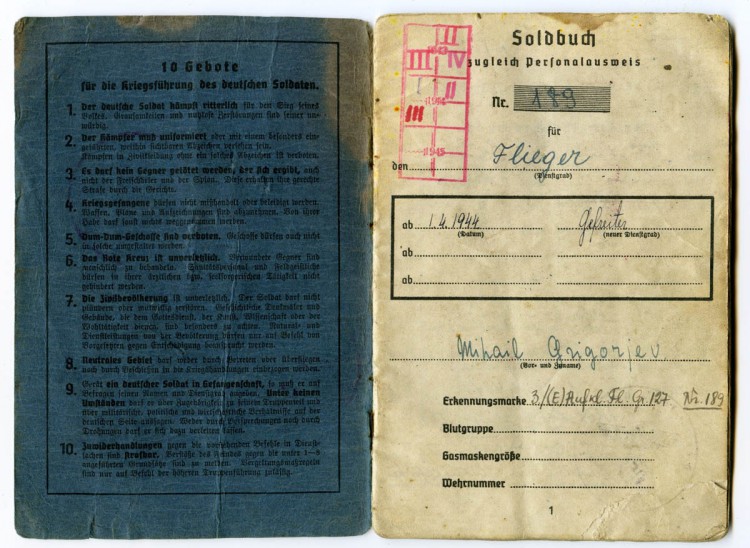 10 Gebote
für die Kriegsführung des deutschen Soldaten.
1. Der deutsche Soldat kämpft ritterlich für den Sieg seines
Volkes. Grausamkeiten und nutzlose Zerstörungen sind seiner un-
würdig.
2. Der Kämpfer muß uniformiert oder mit einem besonders ein-
geführten, weithin sichtbaren Abzeichen versehen sein.
Kämpfen in Zivilkleidung ohne ein solches Abzeichen ist verboten.
3. Es darf kein Gegner getötet werden, der sich ergibt, auch
nicht der Freischärler und der Spion. Diese erhalten ihre gerechte
Strafe durch die Gerichte.
4. Kriegsgefangene dürfen nicht mißhandelt oder beleidigt werden.
Waffen, Pläne und Aufzeichnungen sind abzunehmen. Von ihrer
Habe darf sonst nichts weggenommen werden.
5. Dum-Dum-Geschosse sind verboten. Geschosse dürfen auch nicht
in solche umgestaltet werden.
6. Das Rote Kreuz ist unverletzlich. Verwundete Gegner sind
menschlich zu behandeln. Sanitätspersonal und Feldgeistliche
dürfen in ihrer ärztlichen bzw. seelsorgerischen Tätigkeit nicht
gehindert werden.
7. Die Zivilbevölkerung ist unverletzlich. Der Soldat darf nicht
plündern oder mutwillig zerstören. Geschichtliche Denkmäler und
Gebäude, die dem Gottesdienst, der Kunst, Wissenschaft oder der
Wohltätigkeit dienen, sind besonders zu achten. Natural- und
Dienstleistungen von der Bevölkerung dürfen nur auf Befehl von
Vorgesetzten gegen Entschädigung beansprucht werden.
8. Neutrales Gebiet darf weder durch Betreten oder Überfliegen
noch durch Beschießen in die Kriegshandlungen einbezogen werden.
9. Gerät ein deutscher Soldat in Gefangenschaft, so muß er auf
Befragen seinen Namen und Dienstgrad angeben. Unter keinen
Umständen darf er über Zugehörigkeit zu seinem Truppenteil und
über militärische, politische und wirtschaftliche Verhältnisse auf der
deutschen Seite aussagen. Weder durch Versprechungen noch durch
Drohungen darf er sich dazu verleiten lassen.
10. Zuwiderhandlungen gegen die vorstehenden Befehle in Dienst-
sachen sind strafbar. Verstöße des Feindes gegen die unter 1—8
angeführten Grundsätze sind zu melden. Vergeltungsmaßregeln
sind nur auf Befehl der höheren Truppenführung zulässig.
Soldbuch
zugleich Personalausweis
Nr. 189
für
den Flieger
(Dienstgrad)
II
1943
III IV
I II
1944
III
1945
I
ab 1.4.1944 Gefreiter
(Datum) (neuer Dienstgrad)
ab
ab
Mihail Grigorjev
(Vor- und Zuname)
Erkennungsmarke 3/(E) Aufkl. Fl. Gr. 127 Nr. 189
Blutgruppe
Gasmaskengröße
Wehrnummer
1